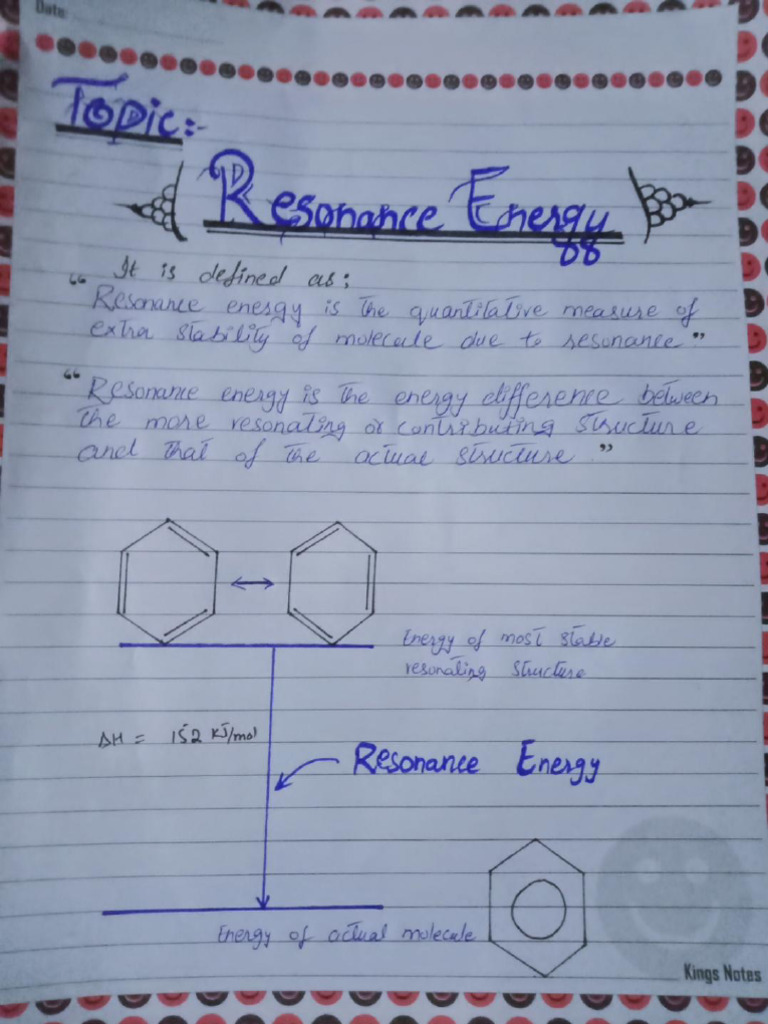 Date
Topic:-
Resonance Energy
It is defined as;
“ Resonance energy is the quantitative measure of
extra stability of molecule due to resonance ”
“ Resonance energy is the energy difference between
the more resonating or contributing structure
and that of the actual structure ”
Energy of most stable
resonating structure
ΔH = 152 KJ/mol
Resonance Energy
Energy of actual molecule
Kings Notes